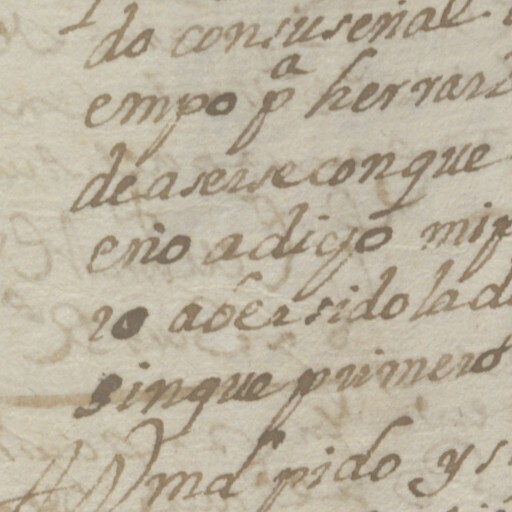 do con su señal
empo pa herrar
de aserse con que
erio a digo mi
ro aber sido la d
sin que primero
A Vmd pido y s